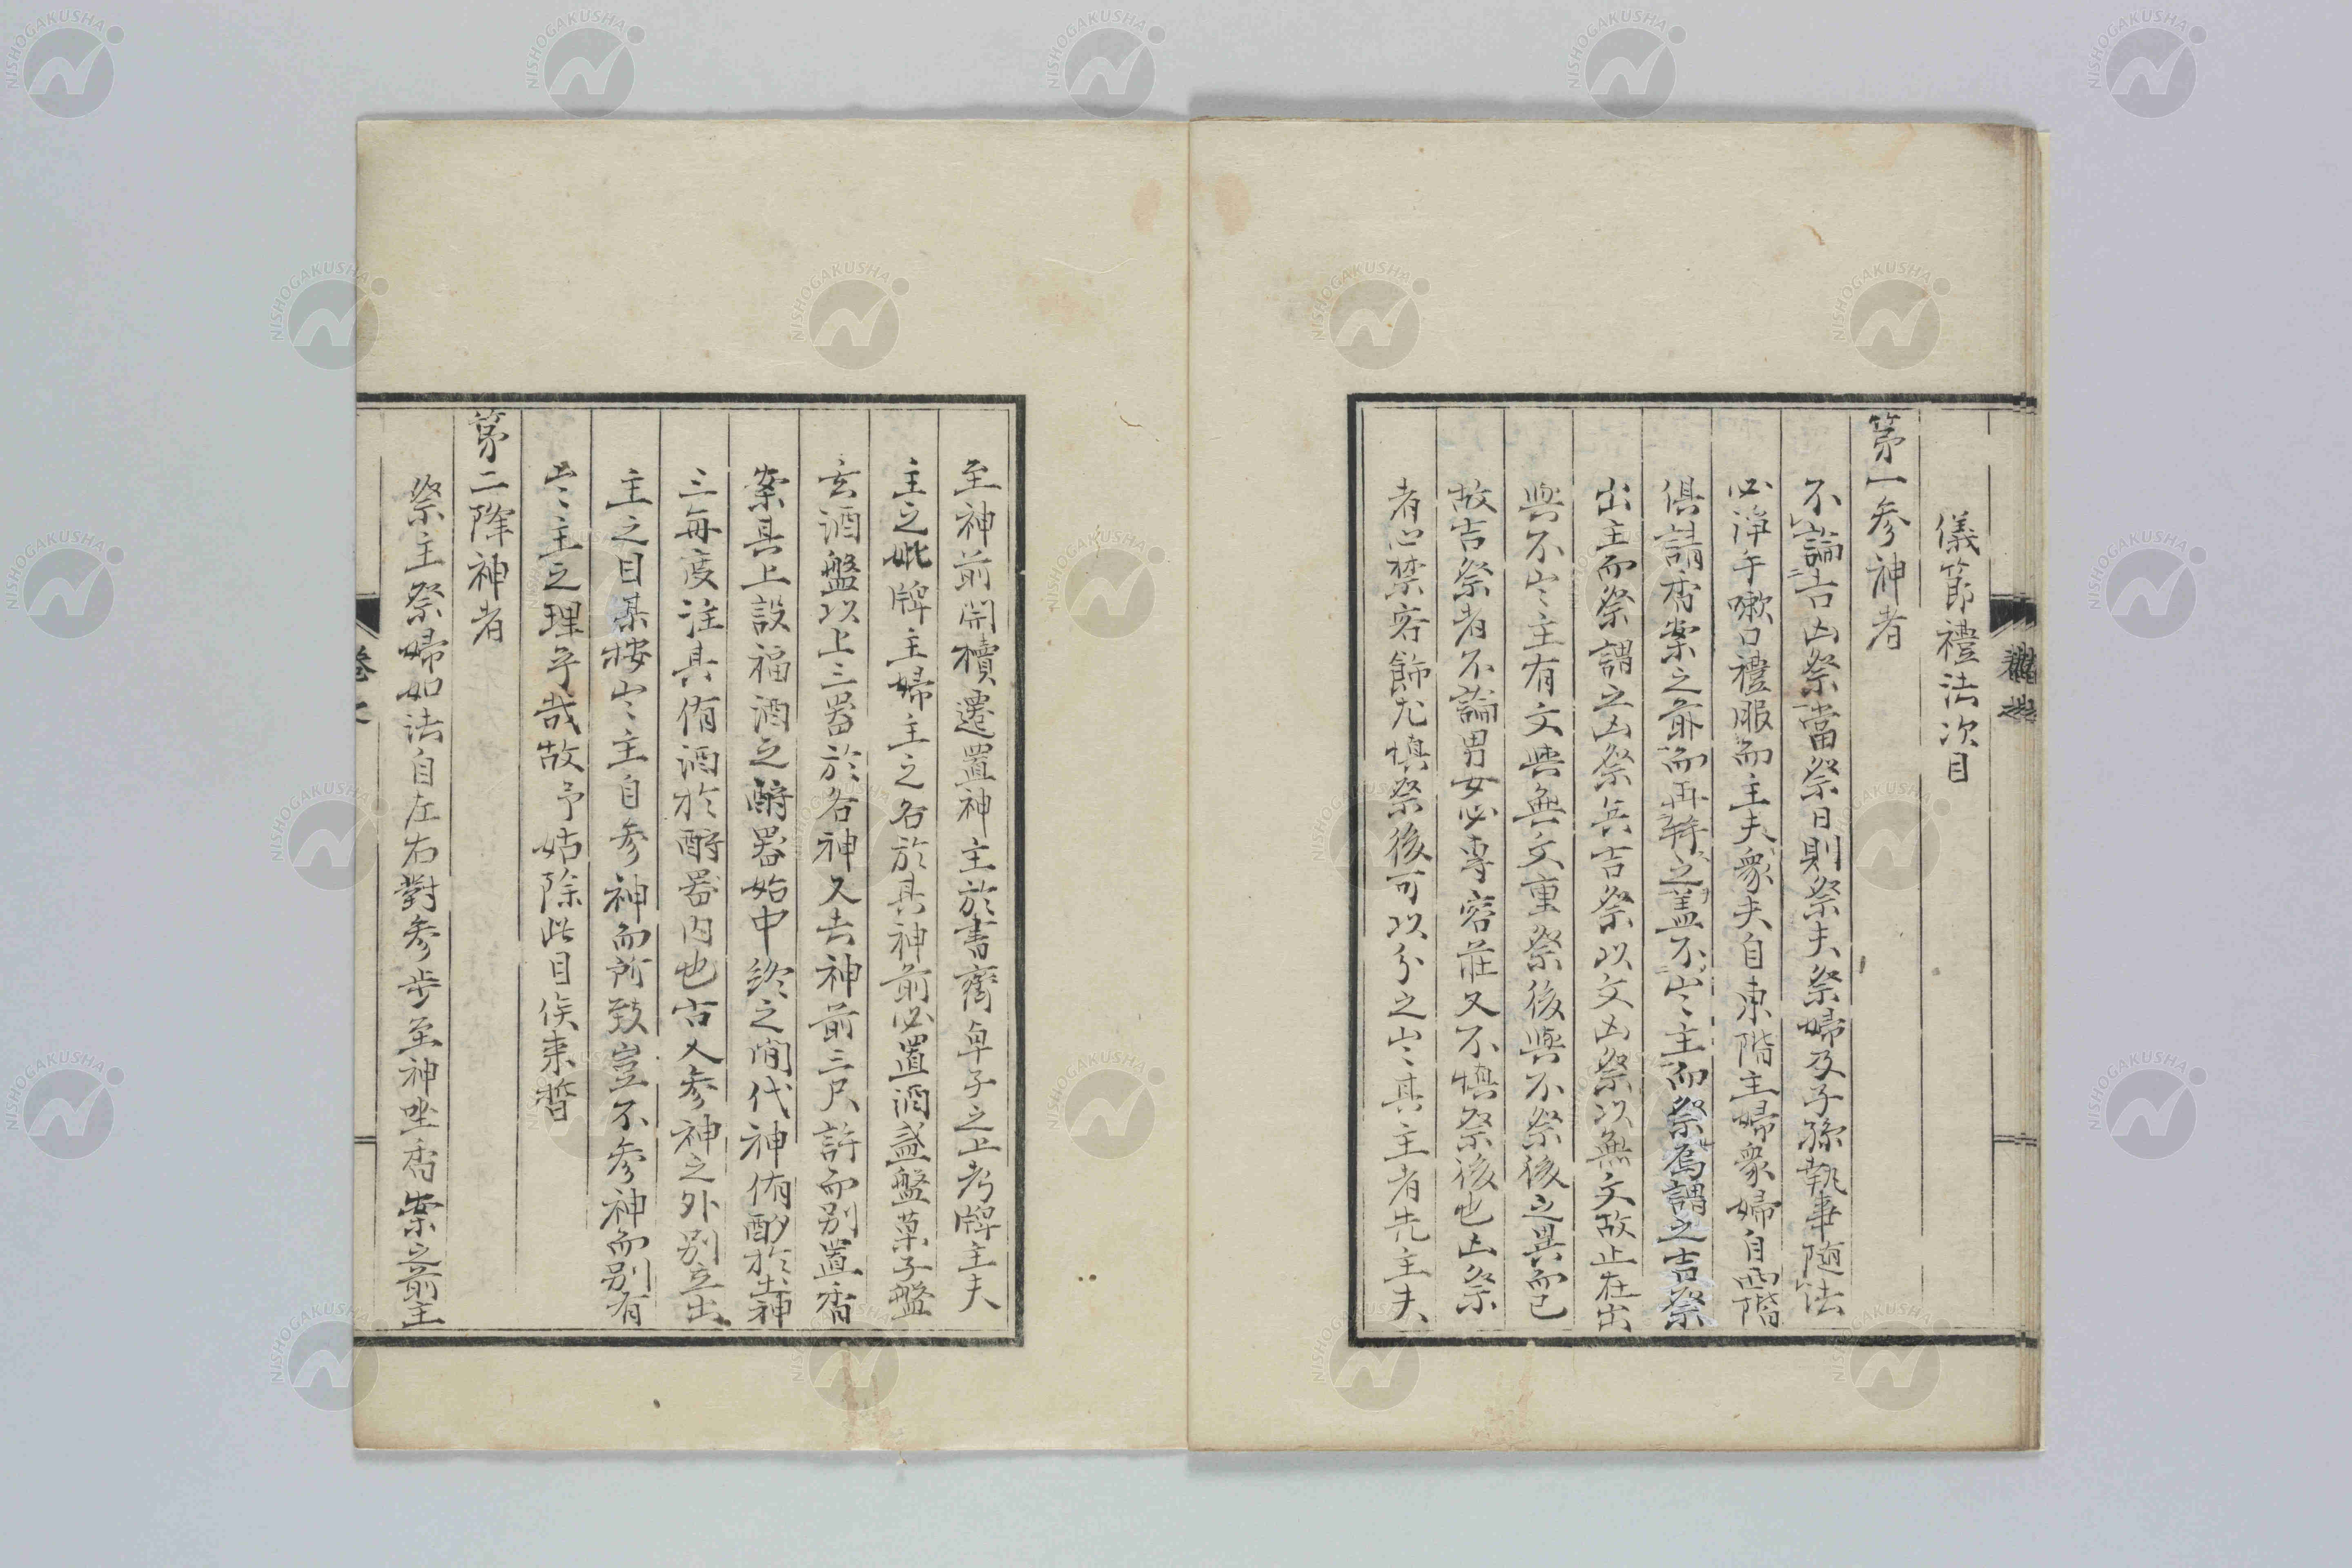 儀節禮法次目
第一參神者
不論吉凶祭當祭日則祭夫祭婦及子孫執事随法
必淨手嗽口禮服而主夫衆夫自東階主婦衆婦自西階
俱請香案之前而再拜之蓋不出主而祭焉謂之吉祭
出主而祭謂之凶祭兵吉祭以文凶祭以無文故止在出
與不出主有文與無文重祭後與不祭後之異而已
故吉祭者不論男女必專容莊又不慎祭後也凶祭
者心禁容飾尤慎祭後可以分之出其主者先主夫
至神前開櫝遷置神主於書齊卓子之上考牌主夫
主之妣牌主婦主之各於其神前必置酒盞盤菓子盤
玄酒盤以上三器於各神又去神前三尺許而別置香
案具上設福酒之酹器始中終之間代神侑酌於土神
三每度注其侑酒於酹器內也古人參神之外別立出
主之目某按出主自參神而所致豈不參神而別有
出主之理乎哉故予姑除此目俟来哲
第二降神者
祭主祭婦如法自左右對參步至神坐香案之前主
NISHOGAKUSHA